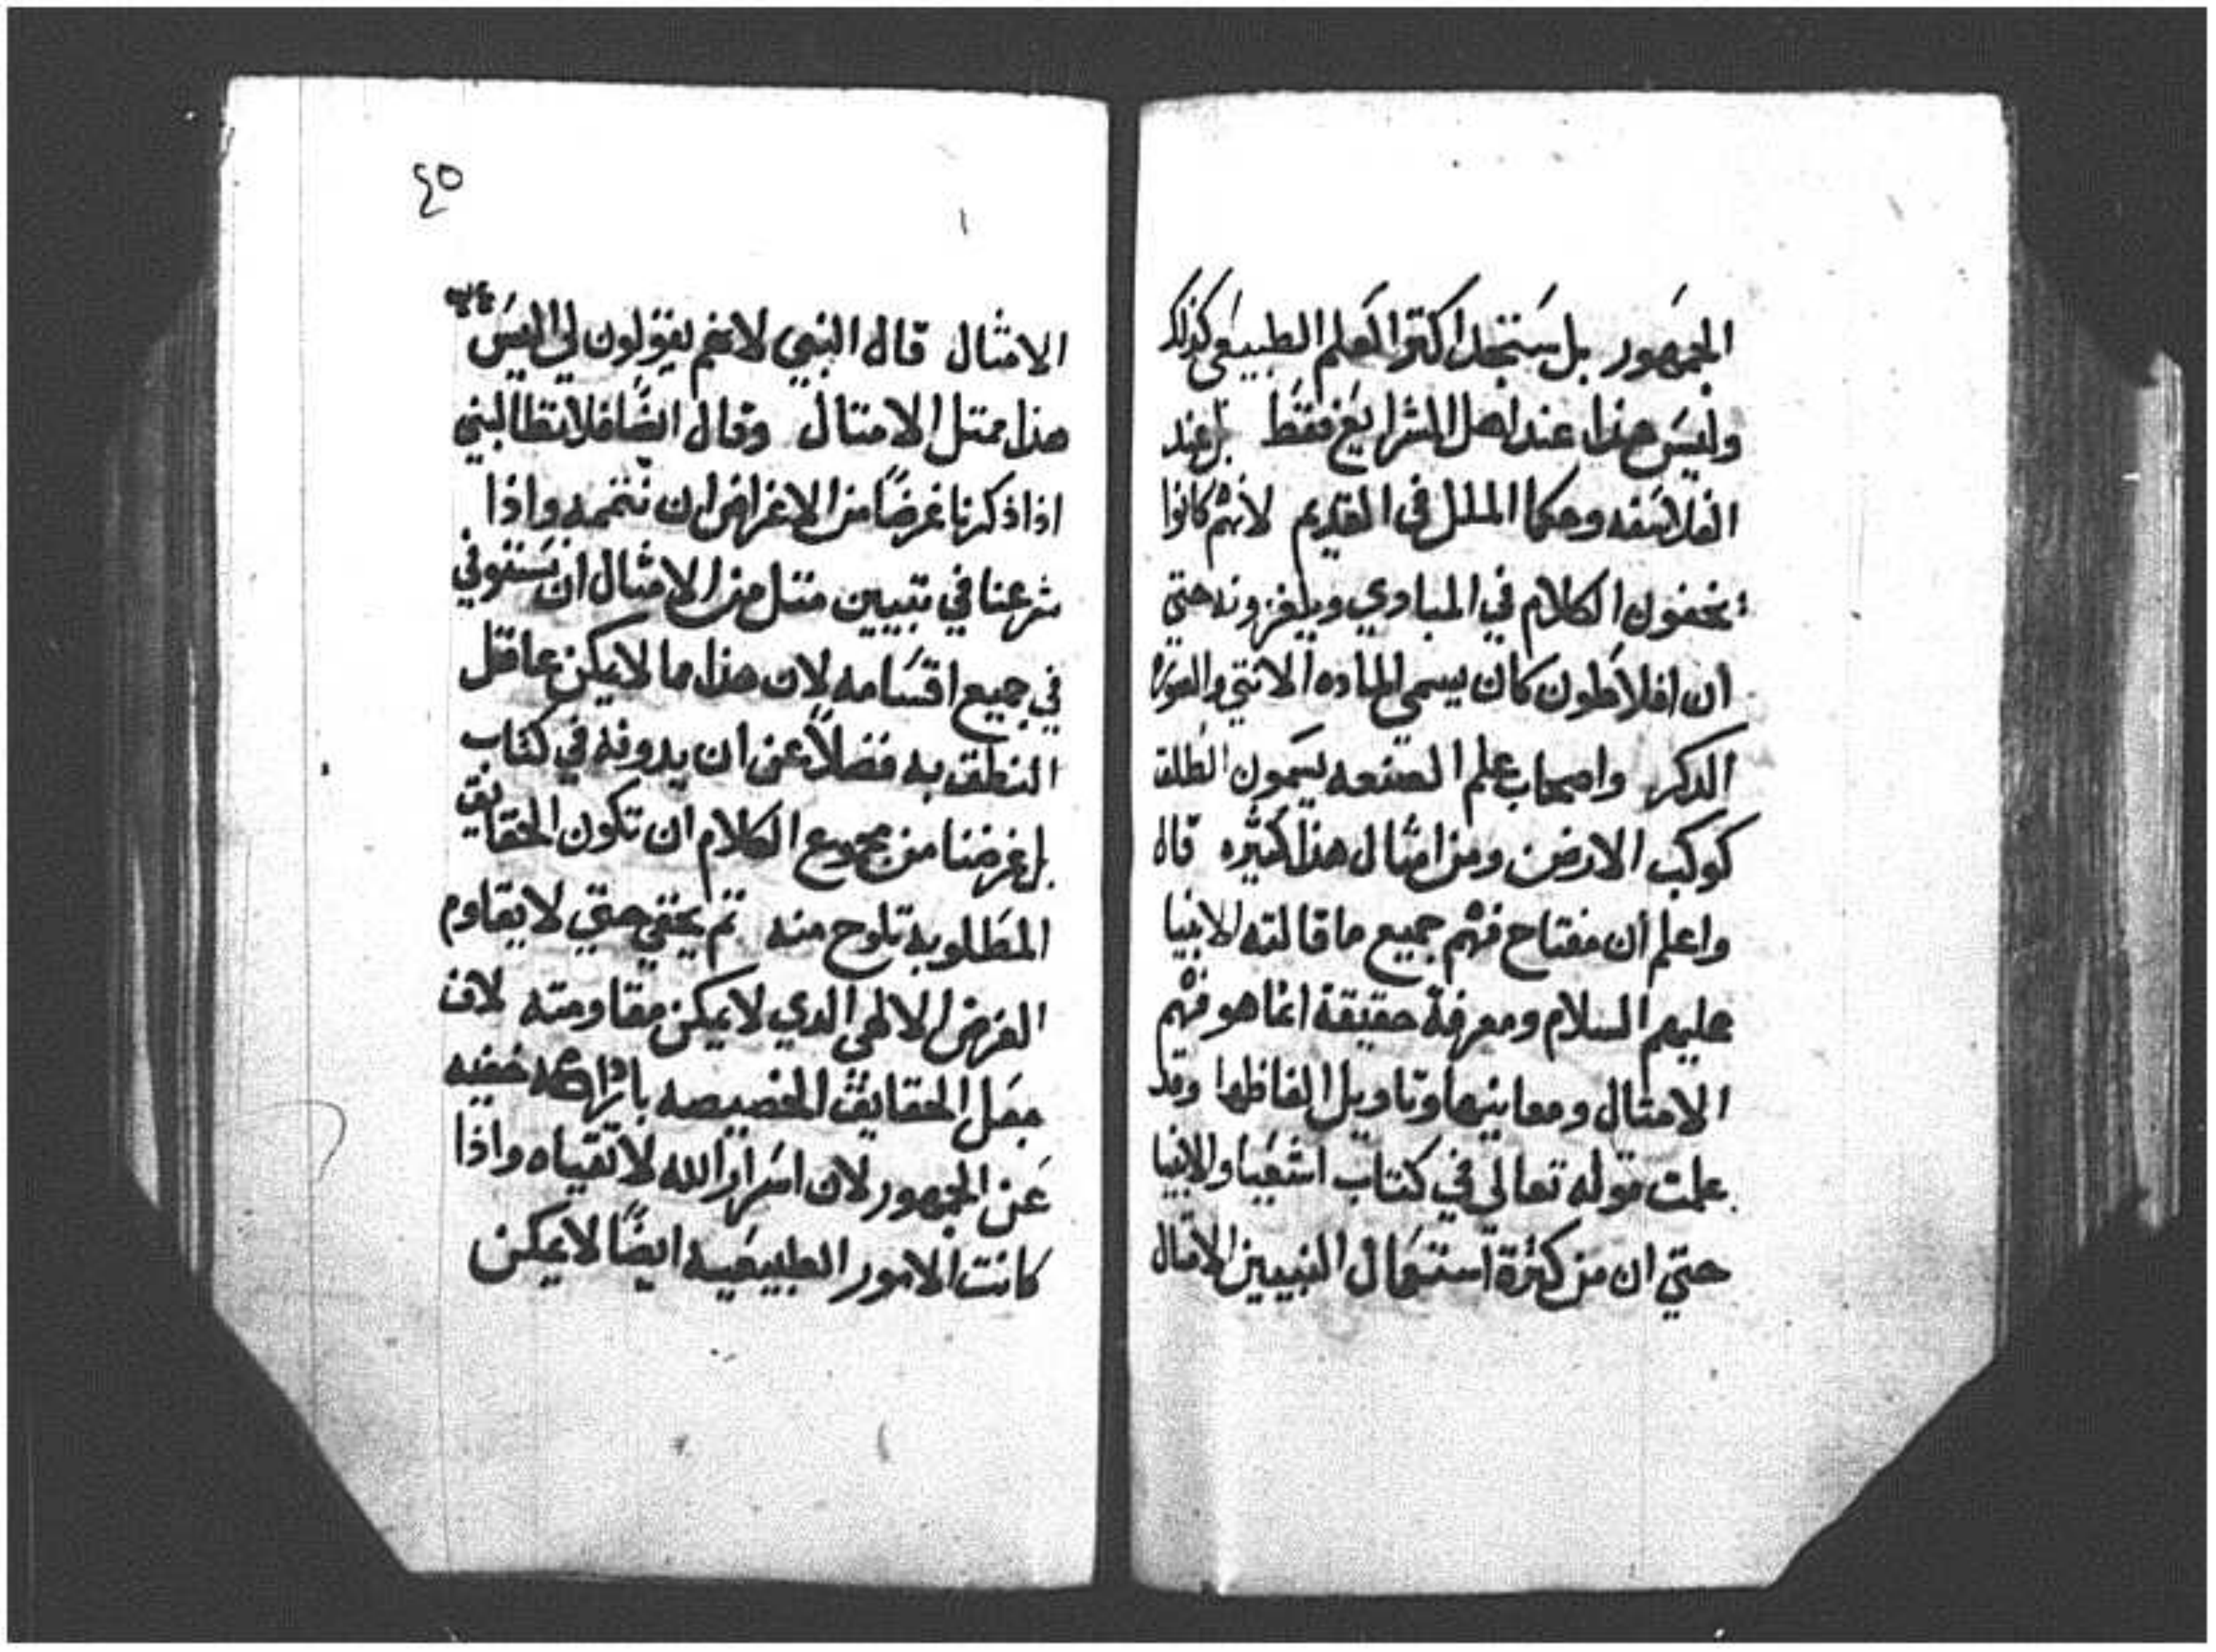 الجمهور بل ستجد اكثر العلم الطبيعي كذلك
وليس هذا عند اهل الشرايع فقط بل عند
الفلاسفه وحكما الملل في القديم لانهم كانوا
يخفون الكلام في المبادي ويلغزونه حتي
ان افلاطون كان يسمي الماده الانتي والصوره
الدكر واصحاب علم الصنعه يسمون الطلق
كوكب الارض ومن امثال هذا كثيره قال
واعلم ان مفتاح فهم جميع ما قالته الانبيا
عليهم السلام ومعرفة حقيقة انما هو فهم
الامتال ومعانيها وتاويل الفاظها وقد
علمت قوله تعالى في كتاب اشعيا والانبيا
حتي ان من كثرة استعمال النبيين الامتال
٤٥
الامثال قال النبي لانهم يقولون لي اليس
هذا ممتل الامتال وقال ايضًا فلا تطالبني
اذا ذكرنا غرضًا من الاغراض ان نتممه واذا
شرعنا في تبيين متل من الامثال ان نستوفي
في جميع اقسامه لان هذا مما لا يمكن عاقل
النطق به فضلاً عن ان يدونه في كتاب
بل غرضنا من مجموع الكلام ان تكون الحقايق
المطلوبه تلوح منه تم يخفي حتي لا يقاوم
الغرض الالهي الدي لا يمكن مقاومته لان
جعل الحقايق الخصيصه خفيه
عن الجمهور لان اسرار الله لاتقياه واذا
كانت الامور الطبيعيه ايضًا لا يمكن